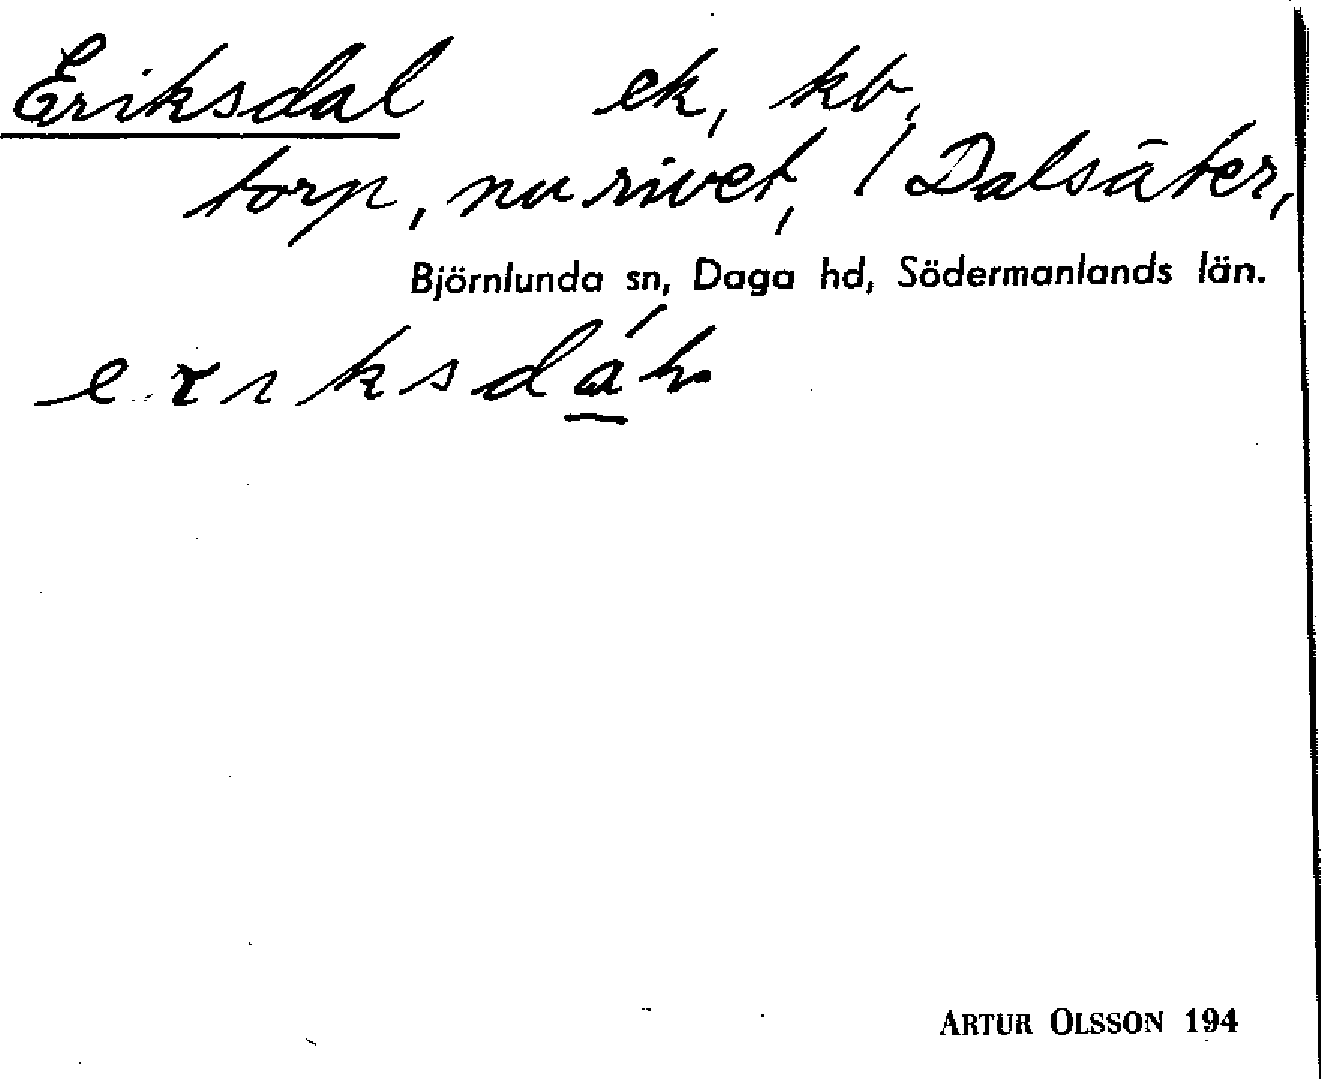 Eriksdal ek, kb,
torp, nu rivet, / Dalsäter,
Björnlunda sn, Daga hd, Södermanlands län.
ARTUR OLSSON 194